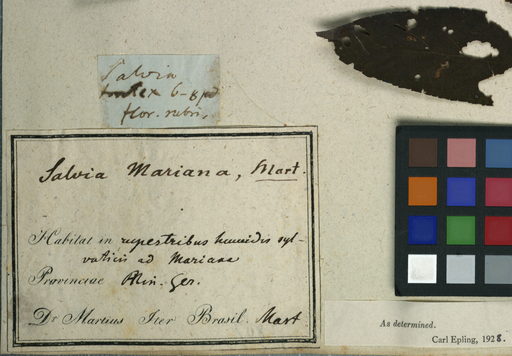 Salvia
frutex 6-8 ped
flor. rubris,
Salvia Mariana, Mart.
Habitat in rupestribus humidis syl-
vaticis ad Mariana
Provinciae Min. Ger.
Dr Martius Iter Brasil. Mart
As determined.
Carl Epling, 1928.